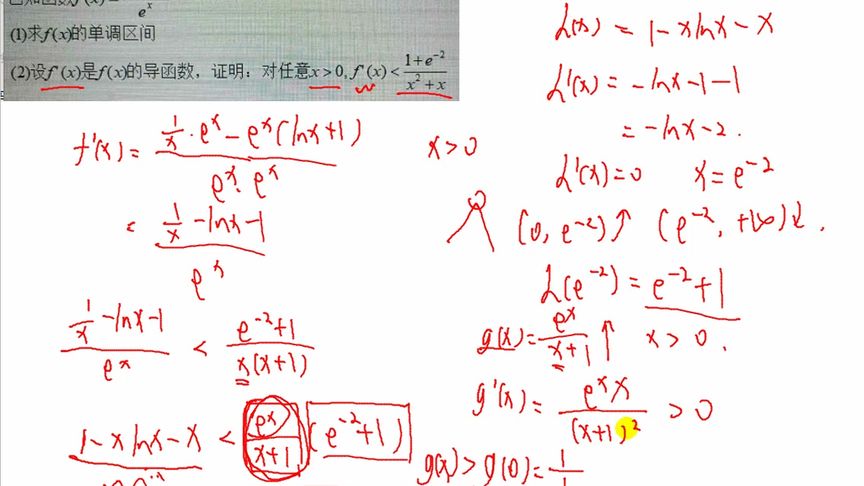 e^x
(1)求f(x)的单调区间
(2)设f'(x)是f(x)的导函数，证明：对任意x>0, f'(x) < (1+e^{-2})/(x^2+x)
f'(x) = (1/x · e^x − e^x(lnx+1))/(e^x · e^x)
x>0
= (1/x −lnx−1)/e^x
(1/x −lnx−1)/e^x < (e^{-2}+1)/(x(x+1))
1−xlnx−x < e^x/(x+1) (e^{-2}+1)
h(x) = 1−xlnx−x
h'(x) = −lnx−1−1
= −lnx−2.
h'(x)=0 x=e^{-2}
(0, e^{-2})↑ (e^{-2}, +∞)↓.
h(e^{-2}) = e^{-2}+1
g(x) = e^x/(x+1) ↑ x>0.
g'(x) = e^x x/(x+1)^2 >0
g(x)>g(0)=1/1